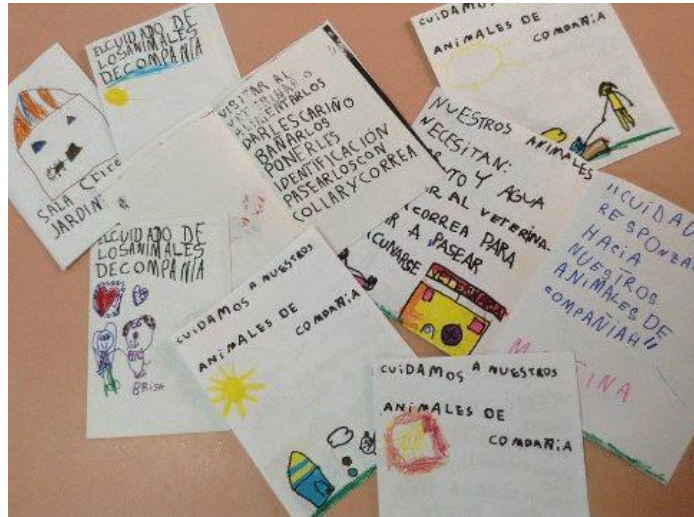 EL CUIDADO DE
LOS ANIMALES
DE COMPAÑIA
SALA
JARDIN
VISITAR AL
VETERINARIO
ALIMENTARLOS
DARLES CARIÑO
BAÑARLOS
PONERLES
IDENTIFICACIÓN
PASEARLOS CON
COLLAR Y CORREA
CUIDAMOS A
ANIMALES DE
COMPAÑIA
NUESTROS ANIMALES
NECESITAN:
Y AGUA
AL VETERINA
CORREA PARA
A PASEAR
VETERINARIA
"CUIDAD
RESPONZA
HACIA
NUESTROS
ANIMALES DE
COMPAÑIAH"
EL CUIDADO DE
LOS ANIMALES
DE COMPAÑIA
BRISA
CUIDAMOS A NUESTROS
ANIMALES DE
COMPAÑIA
CUIDAMOS A NUESTROS
ANIMALES DE
COMPAÑIA